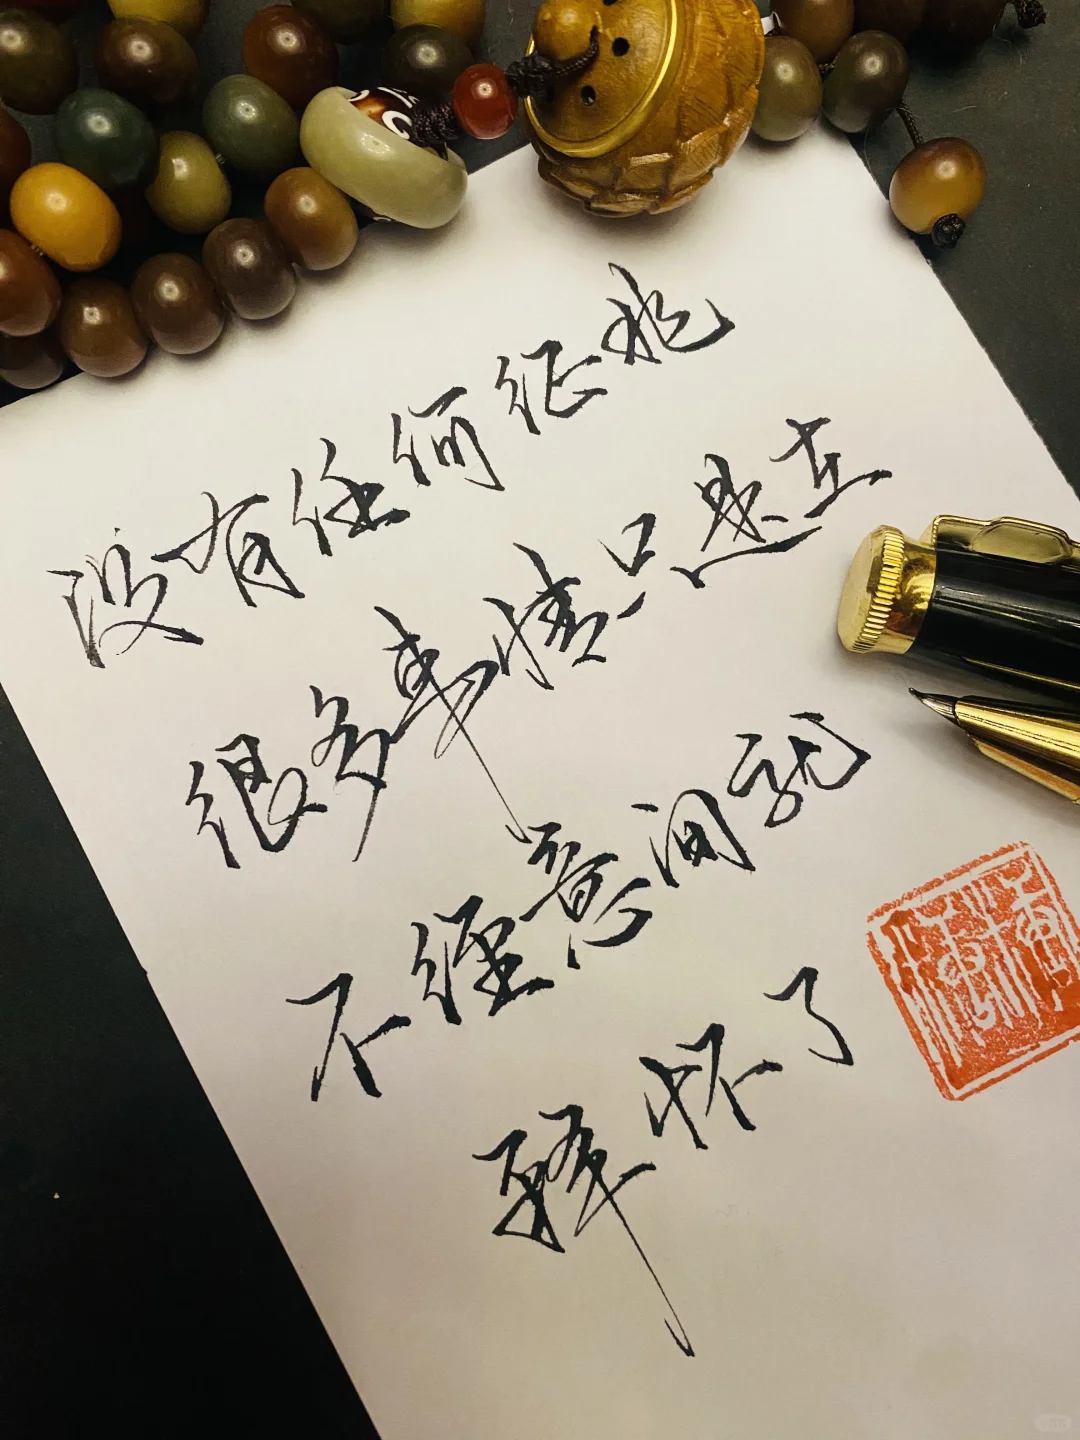 没有任何征兆
很多事情只是在
不经意间就
释怀了